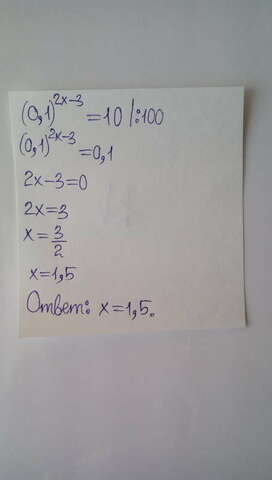 (0,1)^{2x-3} = 10 |:100
(0,1)^{2x-3} = 0,1
2x-3=0
2x=3
x = 3/2
x=1,5
Ответ: x=1,5.